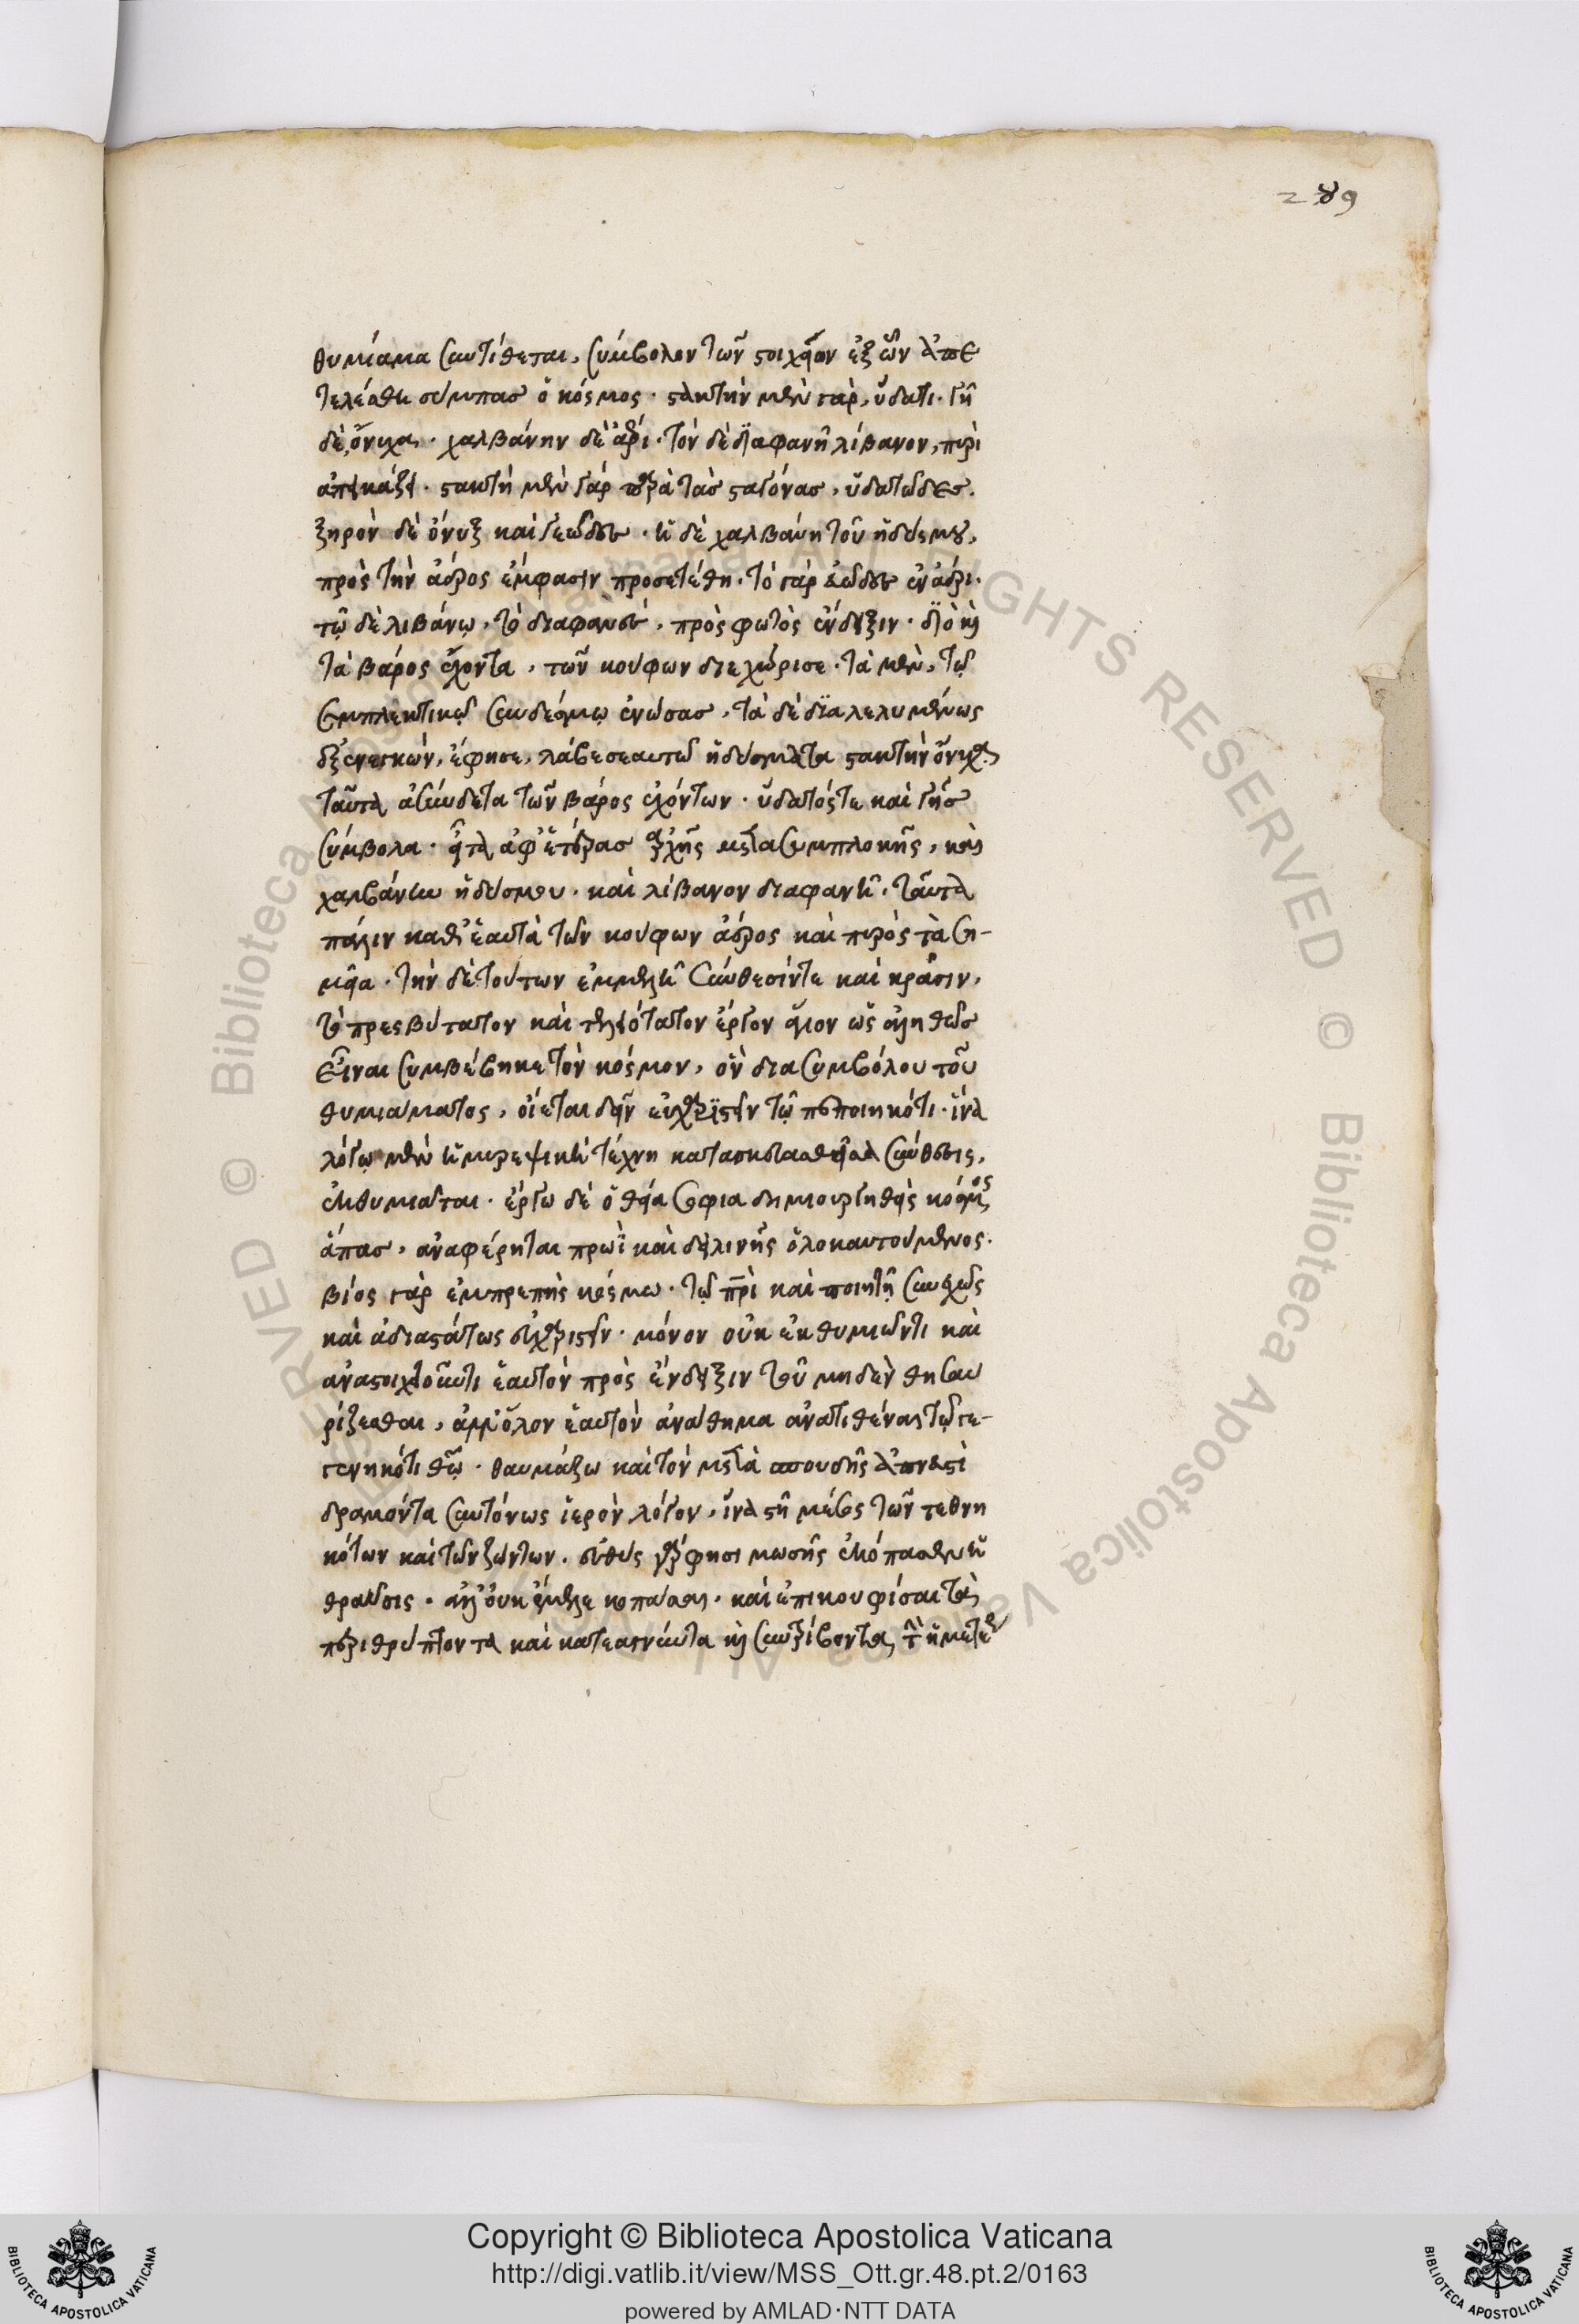 289
θυμίαμα συντίθεται, σύμβολον τῶν στοιχείων ἐξ ὧν ἀπε
τελέσθη σύμπασ ὁ κόσμος. στακτὴν μὲν γὰρ, ὕδατι. γῆ
δὲ, ὄνυχα. χαλβάνην δὲ ἀέρι. τὸν δὲ διαφανῆ λίβανον, πυρὶ
ἀπεικάζει. στακτὴ μὲν γὰρ παρὰ τὰσ σταγόνασ, ὑδατώδεσ.
ξηρὸν δὲ ὄνυξ καὶ γεῶδες. ἡ δὲ χαλβάνη τοῦ ἡδύσμου,
πρὸς τὴν ἀέρος ἔμφασιν προσετέθη. τὸ γὰρ εὐῶδες ἐν ἀέρι.
τῷ δὲ λιβάνῳ, τὸ διαφανὲς, πρὸς φωτὸς ἔνδειξιν. διὸ καὶ
τὰ βάρος ἔχοντα, τῶν κούφων διεχώρισε. τὰ μὲν, τῷ
συμπλεκτικῷ συνδέσμῳ ἑνώσασ, τὰ δὲ διαλελυμένως
ἐξενεγκών, ἔφησε, λάβε σεαυτῶ ἡδύσματα στακτὴν ὄνυχα
ταῦτα ἀσύνδετα τῶν βάρος ἐχόντων. ὕδατός τε καὶ γῆσ
σύμβολα. εἶτα ἀφ' ἑτέρασ ἀρχῆς μετὰ συμπλοκῆς, καὶ
χαλβάνην ἡδύσμου. καὶ λίβανον διαφανῆ. ταῦτα
πάλιν καθ' ἑαυτὰ τῶν κούφων ἀέρος καὶ πυρὸς τὰ ση-
μεῖα. τὴν δὲ τούτων ἐμμελῆ σύνθεσίν τε καὶ κρᾶσιν,
τὸ πρεσβύτατον καὶ τελειότατον ἔργον ἅγιον ὡς ἀληθῶσ
εἶναι συμβέβηκε τὸν κόσμον, ὃν δια συμβόλου τοῦ
θυμιάματος, οἴεται δεῖν εὐχαριστεῖν τῷ πεποιηκότι. ἵνα
λόγω μὲν ἡ μυρεψικῆ τέχνη κατασκευασθεῖσα σύνθεσις,
ἐκθυμιᾶται. ἔργω δὲ ὁ θεία σοφια δημιουργηθεὶς κόσμος
ἅπασ, ἀναφέρηται πρωῒ καὶ δειλινῆς ὁλοκαυτούμενος.
βίος γὰρ ἐμπρεπὴς κόσμω. τῷ πρὶ καὶ ποιητῇ συνεχῶς
καὶ ἀδιαστάτως εὐχαριστεῖν. μόνον οὐκ ἐκθυμιῶντι καὶ
ἀναστοιχειοῦντι ἑαυτὸν πρὸς ἔνδειξιν τοῦ μηδὲν θησαυ
ρίζεσθαι, ἀλλ' ὅλον ἑαυτὸν ἀνάθημα ἀνατιθέναι τῷ γε-
γεννηκότι θεῷ. θαυμάζω καὶ τὸν μετὰ σπουδῆς ἀπνευστὶ
δραμόντα συντόνως ἱερὸν λόγον, ἵνα στῆ μέσος τῶν τεθνη
κότων καὶ τῶν ζώντων. εὐθὺς γάρ φησι μωσῆς ἐκόπασεν ἡ
θραῦσις. ἀλλ' οὐκ ἔμελλε κοπάσαι. καὶ ἐπικουφίσαι τὰ
περιθρύπτοντα καὶ κατεαγνύντα καὶ συντρίβοντα τὴν ἡμετέραν
Copyright © Biblioteca Apostolica Vaticana
http://digi.vatlib.it/view/MSS_Ott.gr.48.pt.2/0163
powered by AMLAD·NTT DATA